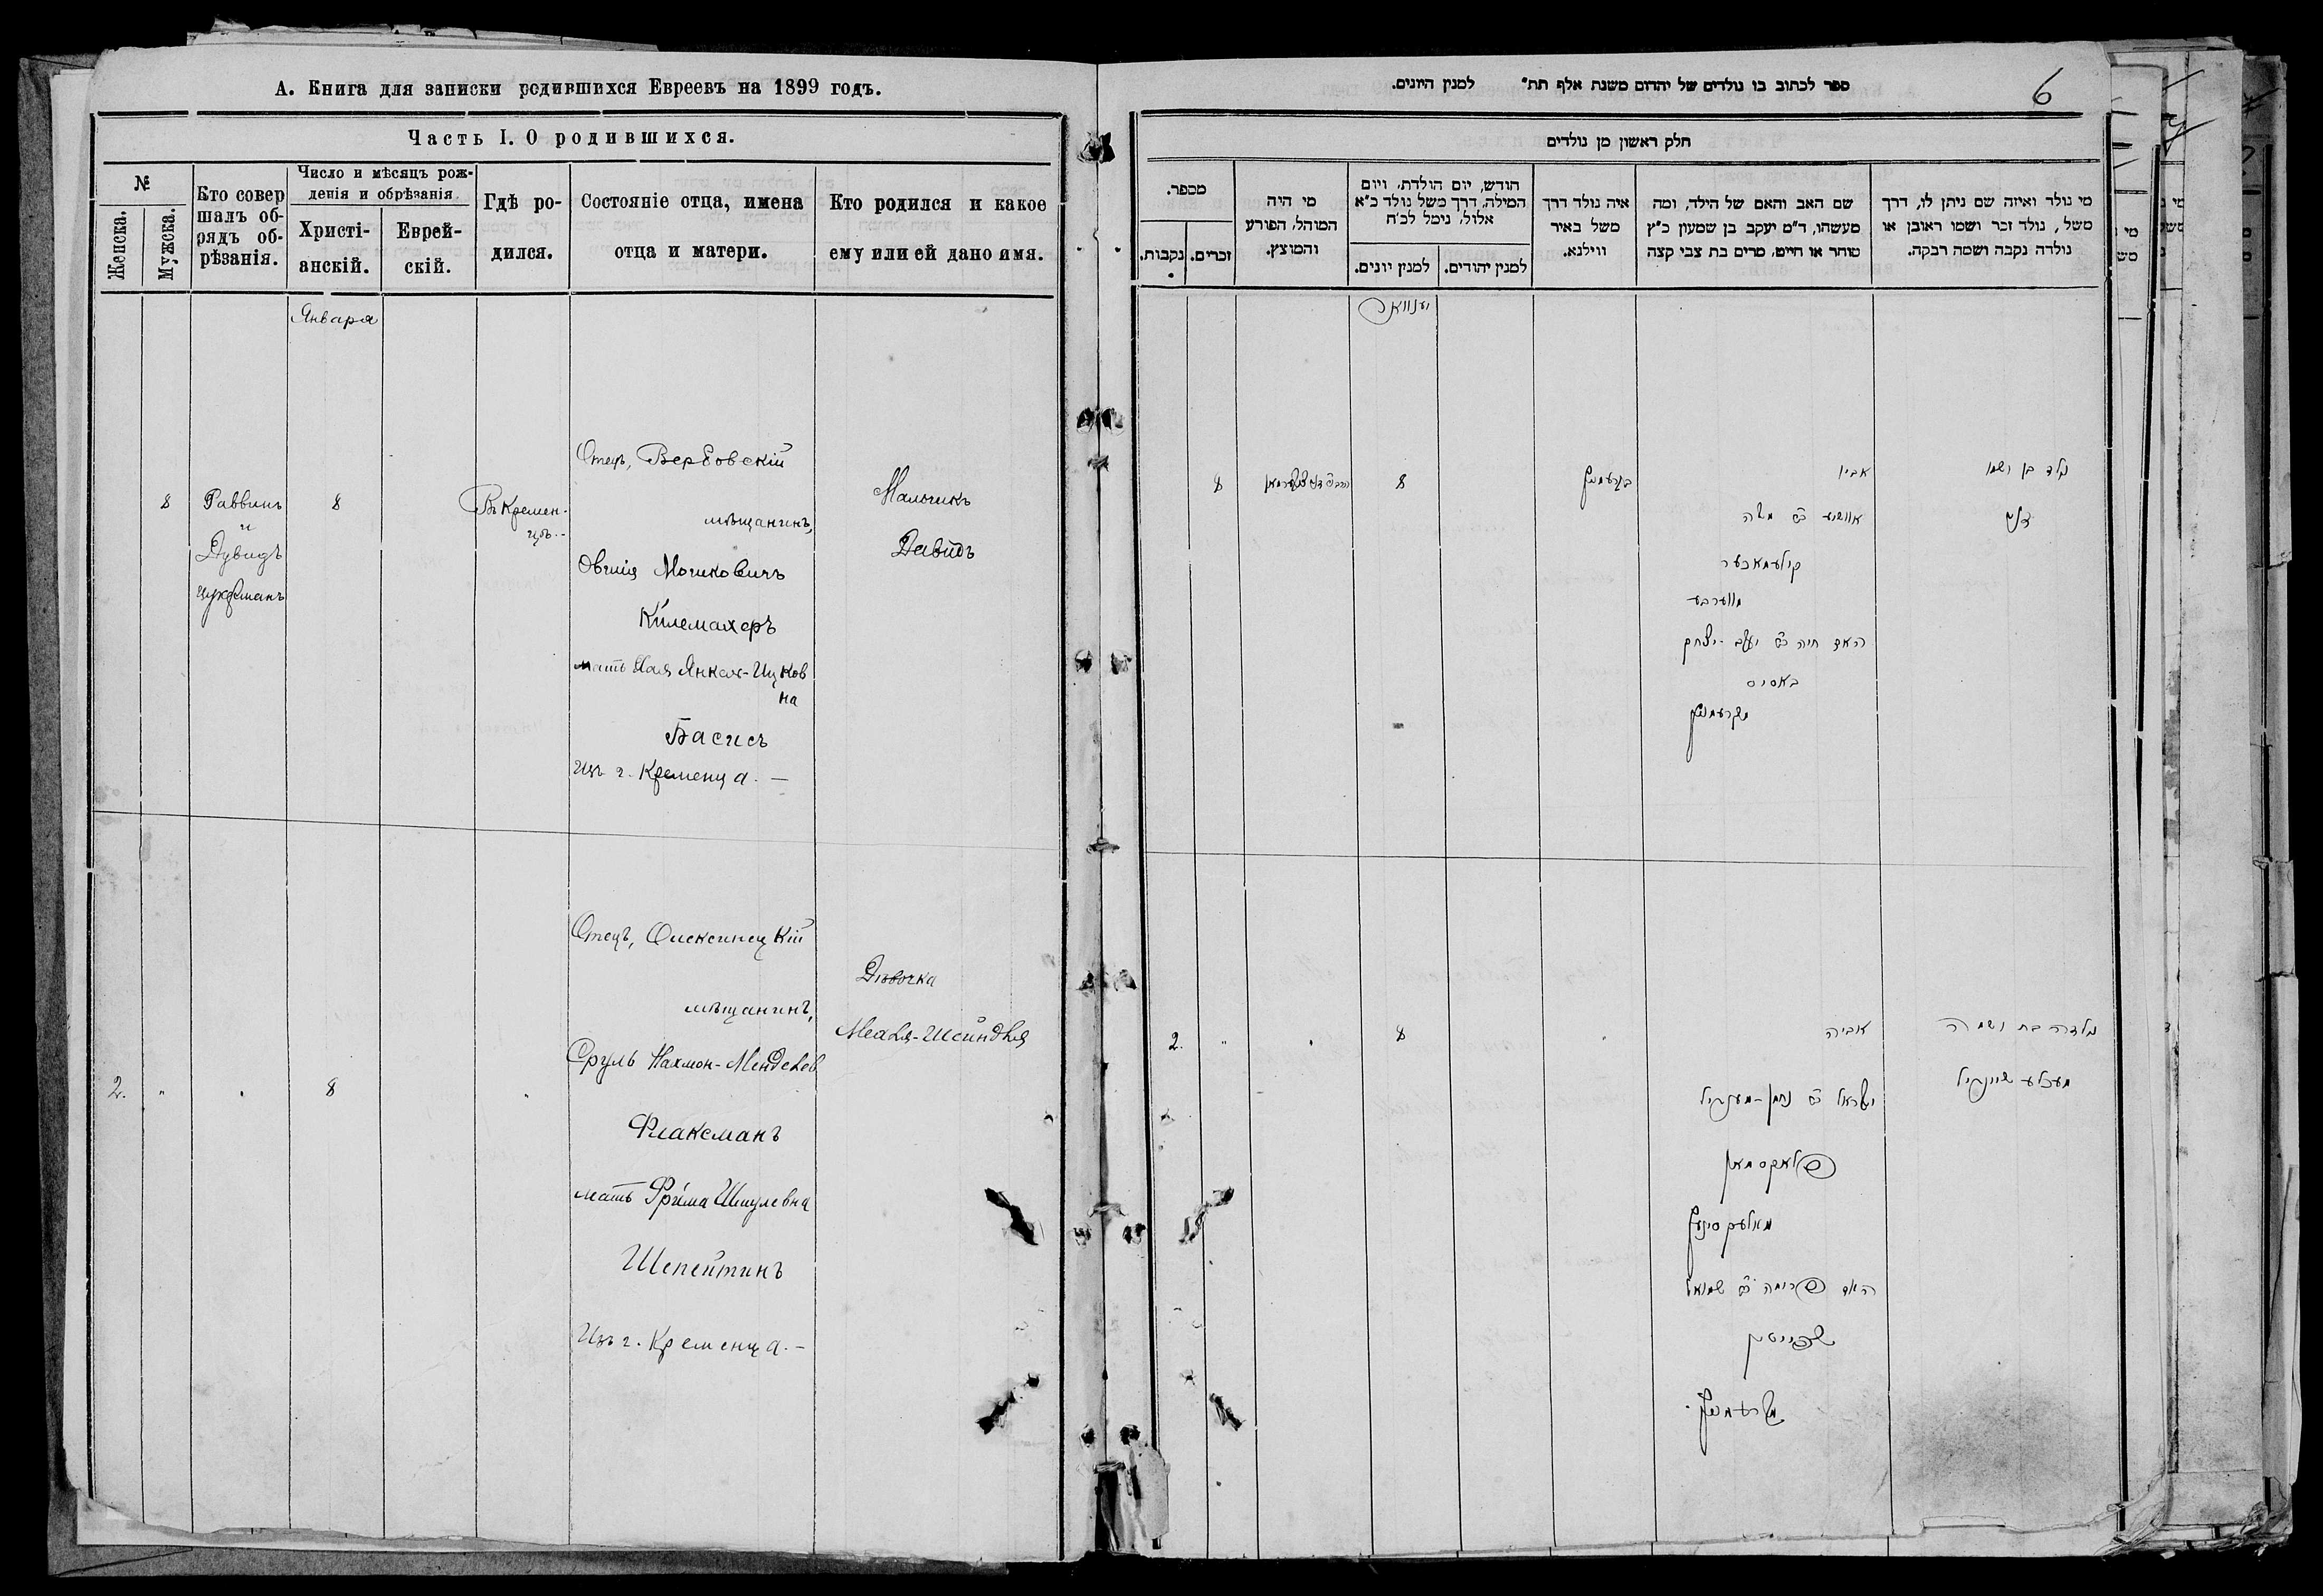 А. Книга для записки родившихся Евреевъ на 1899 годъ.
Часть I. О родившихся.
№
Женска.
Мужска.
Кто совер
шалъ об-
рядъ об-
рѣзанія.
Число и мѣсяцъ рож-
денія и обрѣзанія.
Христі-
анскій.
Еврей-
скій.
Гдѣ ро-
дился.
Состояніе отца, имена
отца и матери.
Кто родился и какое
ему или ей дано имя.
Января
8
Раввинъ
и
Дувидъ
Цукерманъ
8
Въ Кремен-
цѣ.-
Отец, Вербовскій
мѣщанинъ,
Овшія Мошковичъ
Килемахеръ
мать Хая Янкел-Ицков
на
Басисъ
Изъ г. Кременца. —
Мальчикъ
Давидъ
2.
"
"
8
"
Отецъ, Олексинецкій
мѣщанинъ,
Сруль Нахмон-Менделев
Флаксманъ
мать Фрима Шмулевна
Шепейтинъ
Изъ г. Кременца. -
Дѣвочка
-Шейндля
ספר לכתוב בו נולדים של יהדום משנת אלף תת" למנין היונים.
6
חלק ראשון מן נולדים
מכפר.
נקבות.
זכרים.
מי היה
המוהל, הפורע
והמוצץ.
חודש, יום הולדת, ויום
המילה, דרך משל נולד כ"א
אלול, נימל לכ'ח
למנין יונים.
למנין יהודים.
איה נולד דרך
משל באיר
ווילנא.
שם האב והאם של הילד, ומה
מעשהו, ד"מ יעקב בן שמעון כ"ץ
סוחר או חייט, מרים בת צבי קצה
מי נולד ואיזה שם ניתן לו, דרך
משל, נולד זכר ושמו ראובן או
נולדה נקבה ושמה רבקה.
יענוואר
8
8
בקרעמניץ
אביו
אוושיע ב"ר משה
קילעמאכער
מווערבע
האם חיה ב"ר יעקב-יצחק
באסיס
מקרעמניץ
נולד בן ושמו
דוד
2.
"
"
8
"
אביה
ישראל ב"ר נחמן-מענדיל
פלאקסמאן
מאלעקסיניץ
האם פרימה ב"ר שמואל
שפייטין
מקרעמניץ.
נולדה בת ושמה
שיינדיל